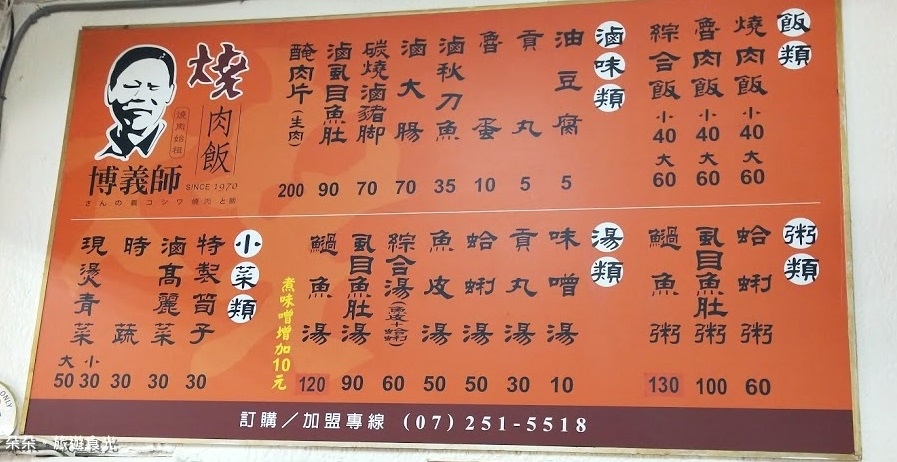 飯類
燒肉飯 小40 大60
魯肉飯 小40 大60
綜合飯 小40 大60
滷味類
油豆腐 5
貢丸 5
魯蛋 10
滷秋刀魚 35
滷大腸 70
碳燒滷豬腳 70
滷虱目魚肚 90
醃肉片(生肉) 200
燒
肉飯
燒肉始祖
博義師
SINCE 1970
粥類
蛤蜊粥 60
虱目魚肚粥 100
過魚粥 130
湯類
味噌湯 10
貢丸湯 30
蛤蜊湯 50
魚皮湯 50
綜合湯(魚皮+蛤蜊) 60
虱目魚肚湯 90
過魚湯 120
煮味噌增加10元
小菜類
特製筍子 30
滷高麗菜 30
時蔬 30
現燙青菜 小30 大50
訂購／加盟專線 (07)251-5518
朵朵·旅遊食光